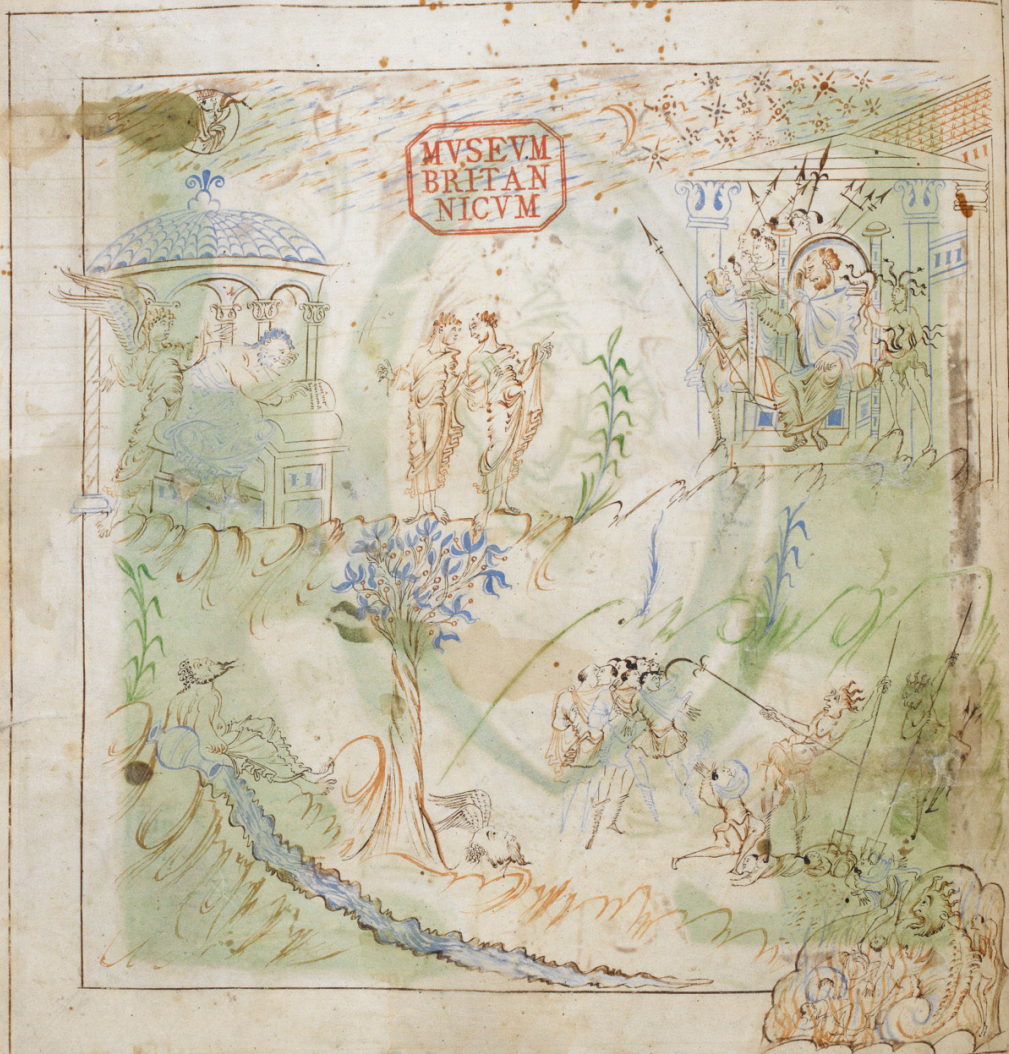 MVSEVM
BRITAN
NICVM